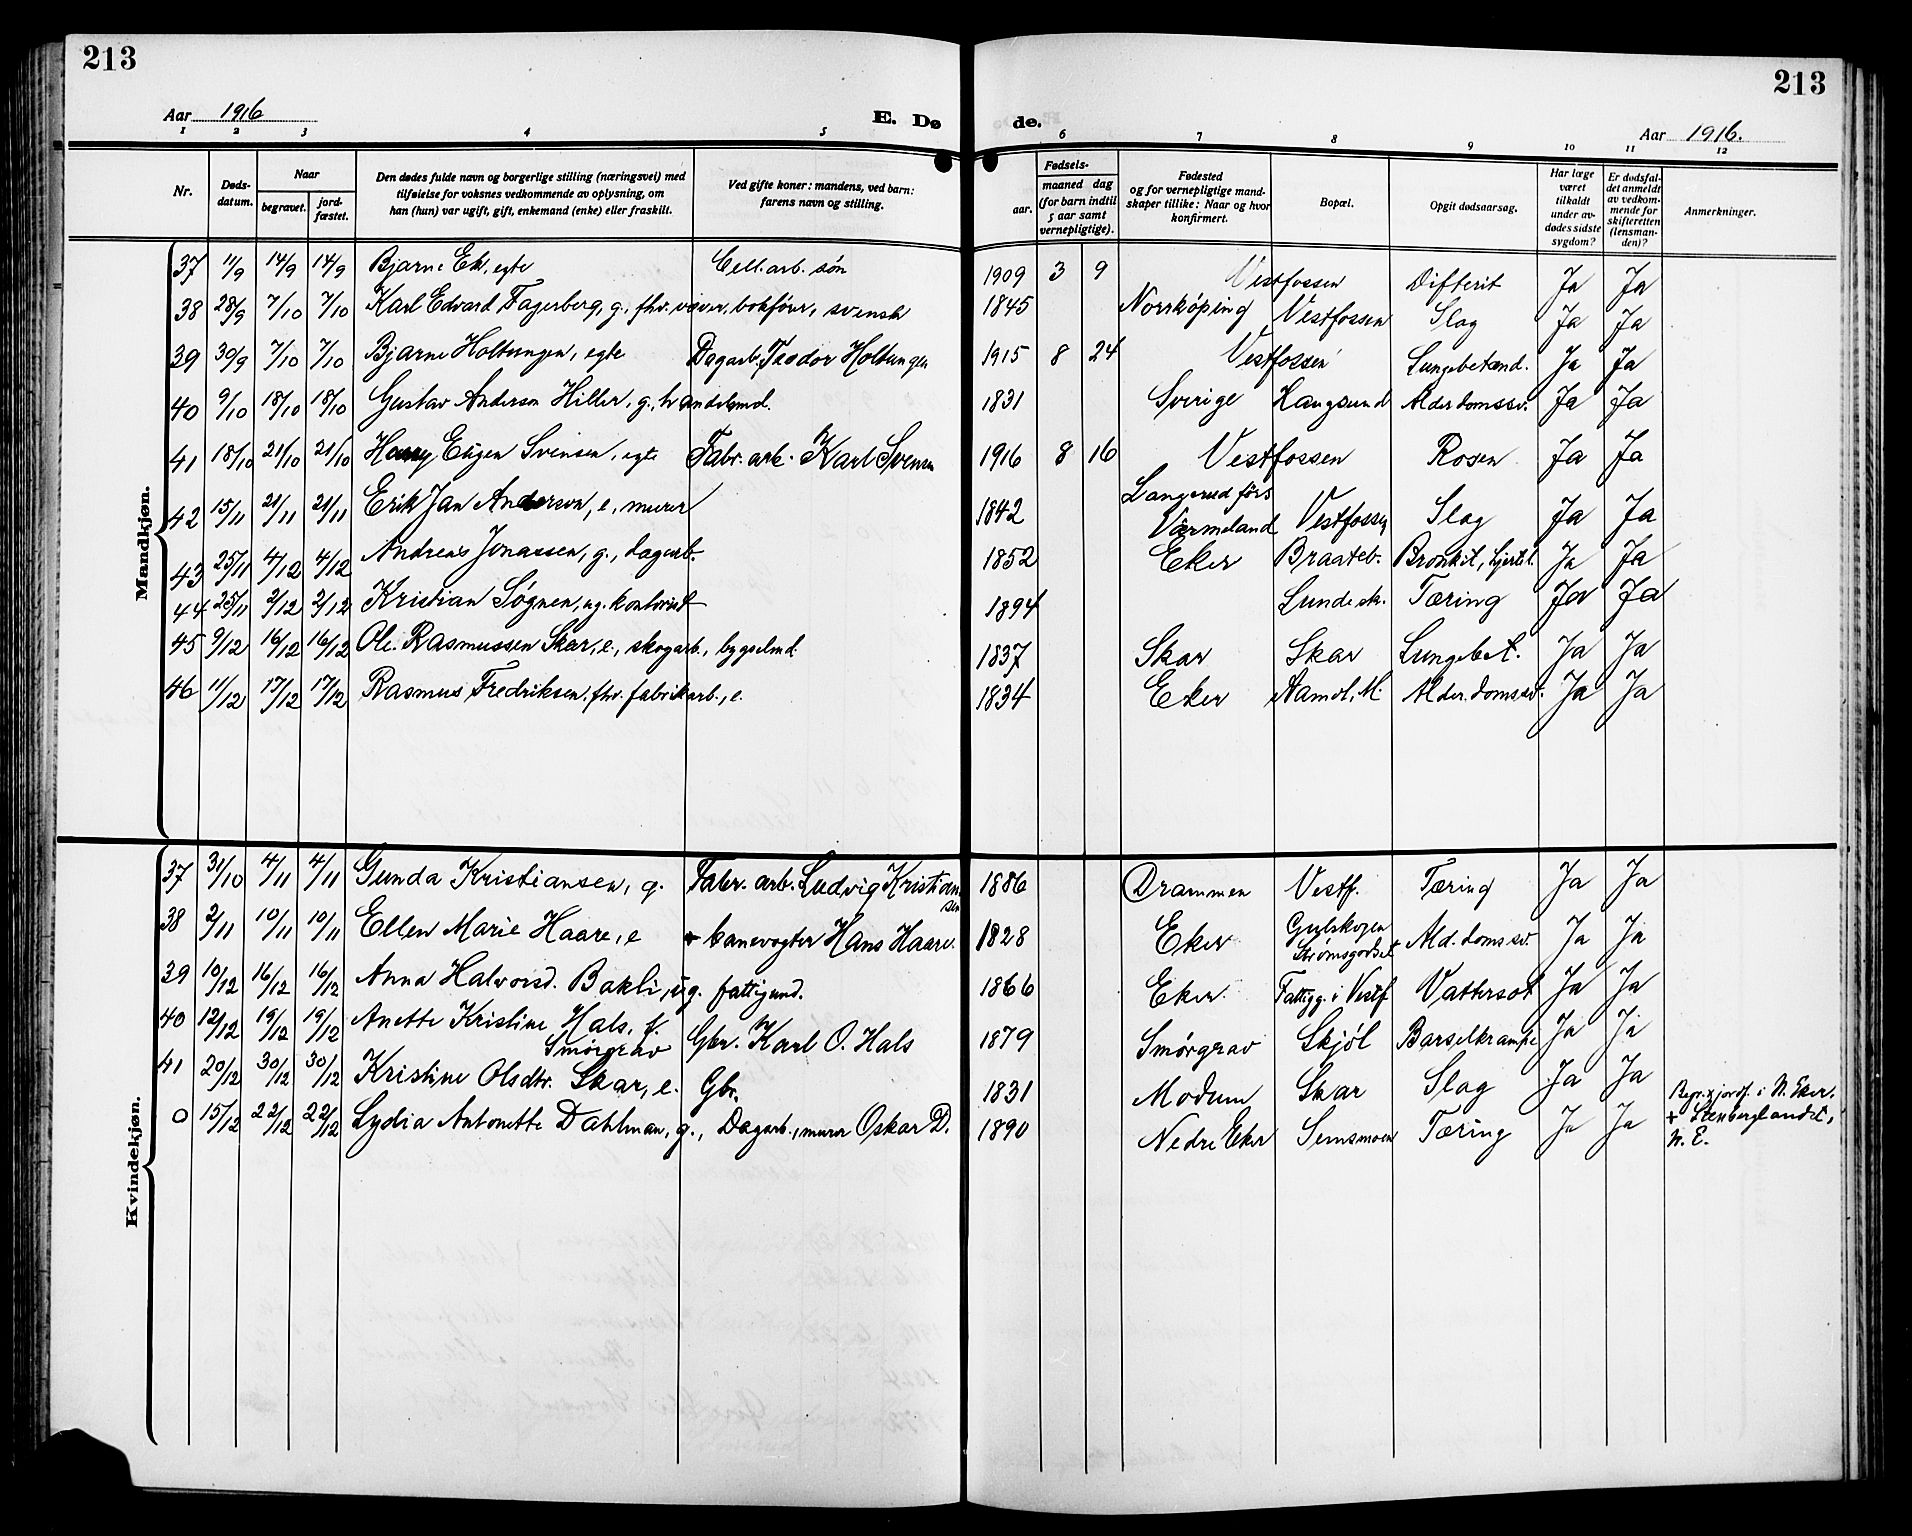 213
213
Aar 1916
E. Dø
de.
Aar 1916.
1 2 3 4 5 6 7 8 9 10 11 12
Nr.
Døds-
datum.
Naar
begravet.
jord-
fæstet.
Den dødes fulde navn og borgerlige stilling (næringsvei) med
tilføielse for voksnes vedkommende av oplysning, om
han (hun) var ugift, gift, enkemand (enke) eller fraskilt.
Ved gifte koner: mandens, ved barn:
farens navn og stilling.
Fødsels-
aar.
maaned dag
(for barn indtil
5 aar samt
vernepligtige).
Fødested
og for vernepligtige mand-
skaper tillike: Naar og hvor
konfirmert.
Bopæl.
Opgit dødsaarsag.
Har læge
været
tilkaldt
under av-
dødes sidste
sygdom?
Er dødsfal-
det anmeldt
av vedkom-
mende for
skifteretten
(lensman-
den)?
Anmerkninger.
Mandkjøn.
37 11/9 14/9 14/9 Bjarne Ek, egte Cell. arb. søn 1909 3 9 Vestfossen Difterit Ja Ja
38 28/9 7/10 7/10 Karl Edvard Fagerberg, g., fhv. bokfører, svensk 1845 Norrköping Vestfossen Slag Ja Ja
39 30/9 7/10 7/10 Bjarne Holtungen, egte Dagarb. Teodor Holtungen 1915 8 24 Vestfossen Lungebetænd. Ja Ja
40 9/10 18/10 18/10 Gustav Anderson Hiller, g., handelsmd. 1831 Sverige Langsund Alderdomssv. Ja Ja
41 18/10 21/10 21/10 Harry Eugen Svensen, egte Fabr. arb. Karl Svensen 1916 8 16 Vestfossen Rosen Ja Ja
42 15/11 21/11 21/11 Erik Jan Anderson, e, murer 1842 Langerud förs
Värmeland Vestfossen Slag Ja Ja
43 25/11 4/12 4/12 Andreas Jonassen, g., dagarb. 1852 Eker Braateb. Bronkit, hjertel. Ja Ja
44 25/11 2/12 2/12 Kristian Søgnen, ug. kontorist 1894 Lunde sk. Tæring Ja Ja
45 9/12 16/12 16/12 Ole Rasmussen Skar, e., skogarb., bygselmd. 1837 Skar Skar Lungebet. Ja Ja
46 11/12 17/12 17/12 Rasmus Fredriksen, fhv. fabrikarb., e. 1834 Eker Aamot, M. Alderdomssv. Ja Ja
Kvindekjøn.
37 31/10 4/11 4/11 Gunda Kristiansen, g. Fabr. arb. Ludvig Kristian
sen 1886 Drammen Vestf. Tæring Ja Ja
38 2/11 10/11 10/11 Ellen Marie Haare, e banevogter Hans Haare. 1828 Eker Gulskogen
Strømsgodset Ald. domssv. Ja Ja
39 10/12 16/12 16/12 Anna Halvorsd. Bakli, ug. fattigund. 1866 Eker Fattigg. i Vestf Vattersot Ja Ja
40 12/12 19/12 19/12 Anette Kristine Hals, f.
Smörgrav Gbr. Karl O. Hals 1879 Smörgrav Skjöl Barselkrampe Ja Ja
41 20/12 30/12 30/12 Kristine Olsdtr. Skar, e. Gbr. 1831 Modum Skar Slag Ja Ja
0 15/12 22/12 22/12 Lydia Antonette Dahlman, g., Dagarb., murer Oskar D. 1890 Nedre Eker Semsmoen Tæring Ja Ja Begr. & jordf. i N. Eker.
+ Stenberglandet,
N. E.